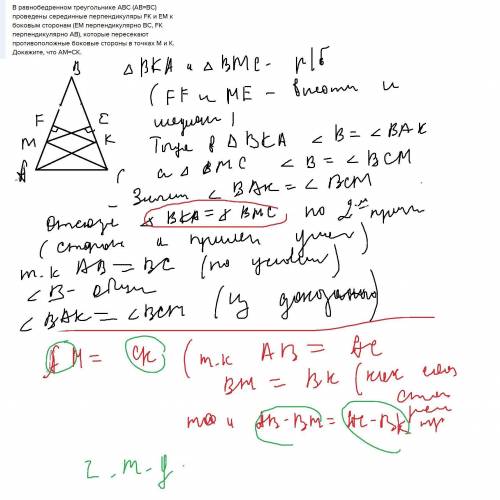 В равнобедренном треугольнике ABC (AB=BC)
проведены серединные перпендикуляры FK и EM к
боковым сторонам (EM перпендикулярно BC, FK
перпендикулярно AB), которые пересекают
противоположные боковые стороны в точках M и K.
Докажите, что AM=CK.
B
F
E
M
K
A
C
△ BKA и △ BMC - р/б
(FF и ME - высоты и
медиан)
Тогда в △ BKA ∠ B = ∠ BAK
а △ BMC ∠ B = ∠ BCM
- Значит ∠ BAK = ∠ BCM
Отсюда △ BKA = △ BMC по 2-м
(сторон и прилеж углам)
т.к AB = BC (по условию)
∠ B - общи
∠ BAK = ∠ BCM (из доказанного)
AM = CK (т.к AB = AC
BM = BK (как
то и AB - BM = AC - BK
ч.т.д.